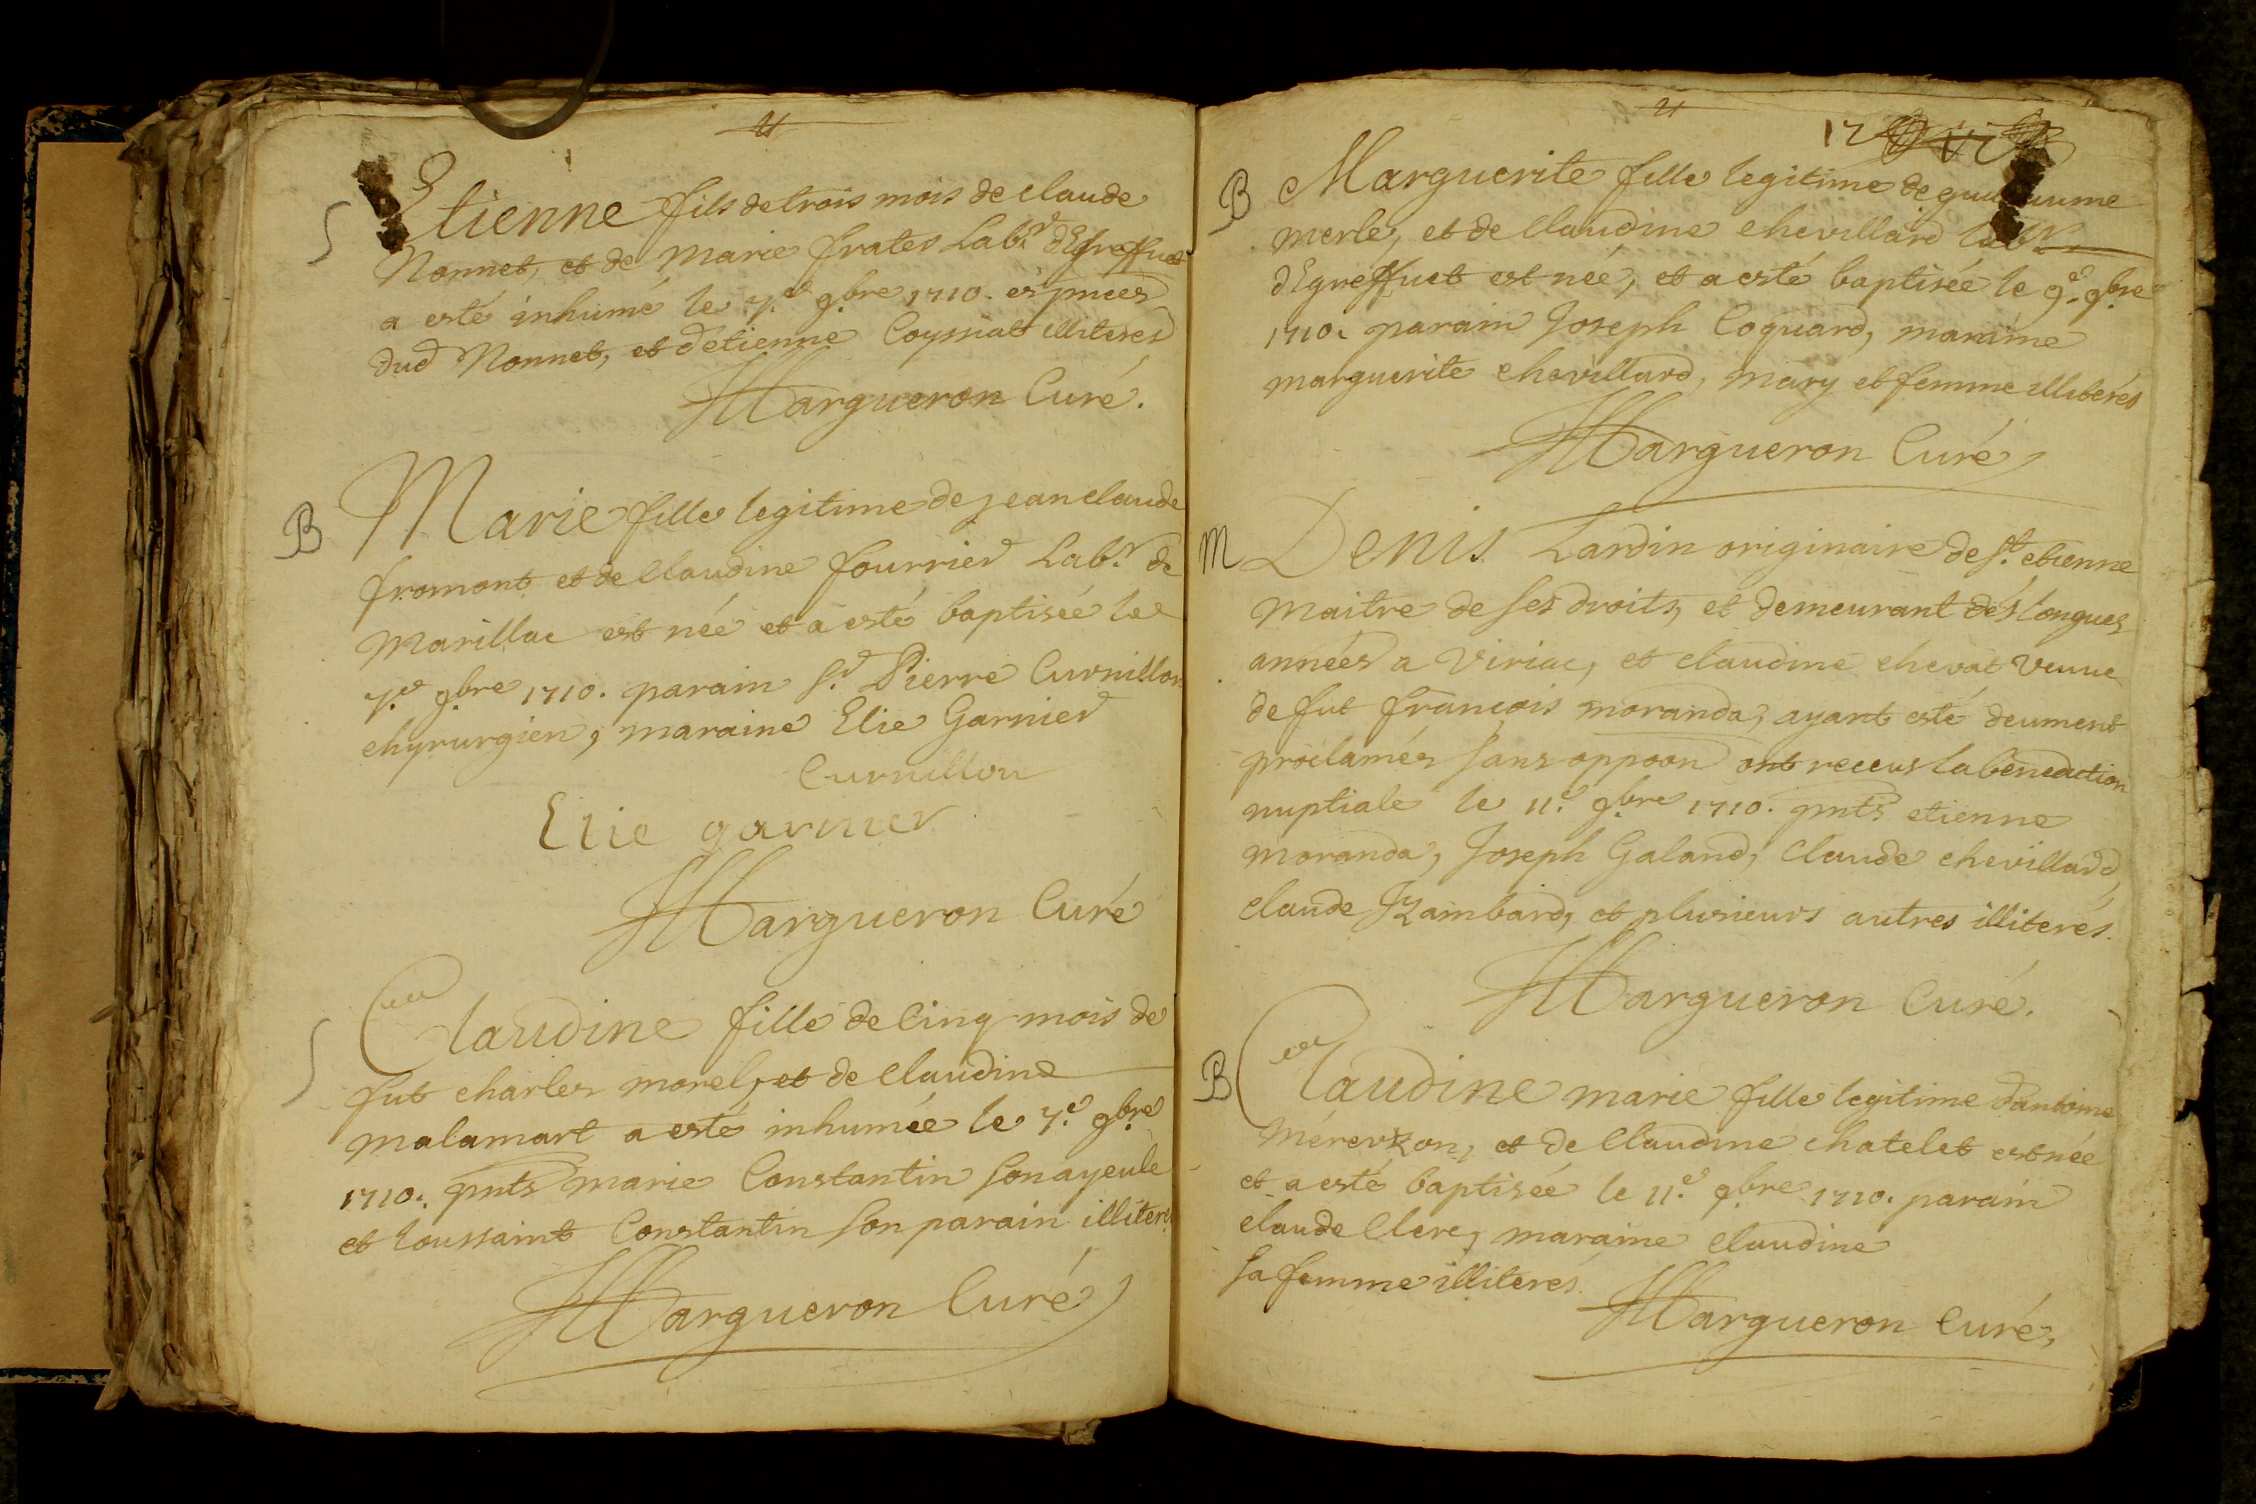 Etienne fils de trois mois de Claude
S
Nonnet, et de Marie frates Labr.
a esté inhumé le 7.e 9.bre 1710. és pnces
dud Nonnet, et d'etienne Coyssiat illiteres
Margueron Curé.
B
Marie fille legitime de jean claude
fromont et de Claudine fourrier Lab.r de
Marillac est née et a esté baptisée le
7.e 9.bre 1710. parain S.r Pierre Curnillon
chyrurgien, maraine Elie Garnier
Curnillon
Elie garnier
Margueron Curé
S
Claudine fille de Cinq mois de
fut charles morel, et de Claudine
malamart a esté inhumée le 7.e 9.bre
1710. pnts marie Constantin son ayeule
et toussaint Constantin son parain illiteres
Margueron Curé
17
B
Marguerite fille legitime de guillaume
merle, et de Claudine chevillard Labr.
d'Egreffuet est née, et a esté baptisée le 9.e 9.bre
1710. parain Joseph Coquard, maraine
marguerite chevillard, mary et femme illiterés
Margueron Curé
M
Denis Lardin originaire de St. etienne
maitre de ses droits, et demeurant dés longues
années a Viriac, et claudine chevat veuue
de fut francois moranda, ayant esté deument
proclamés sans oppoon ont receus la benediction
nuptiale le 11.e 9.bre 1710. pnts etienne
moranda, Joseph Galand, Claude chevillard,
claude et plusieurs autres illiterés.
Margueron Curé.
B
Claudine marie fille legitime d'antoine
et de Claudine chatelet est née
et a esté baptisée le 11.e 9.bre 1710. parain
claude Clerc, maraine claudine
sa femme illiterés.
Margueron Curé,